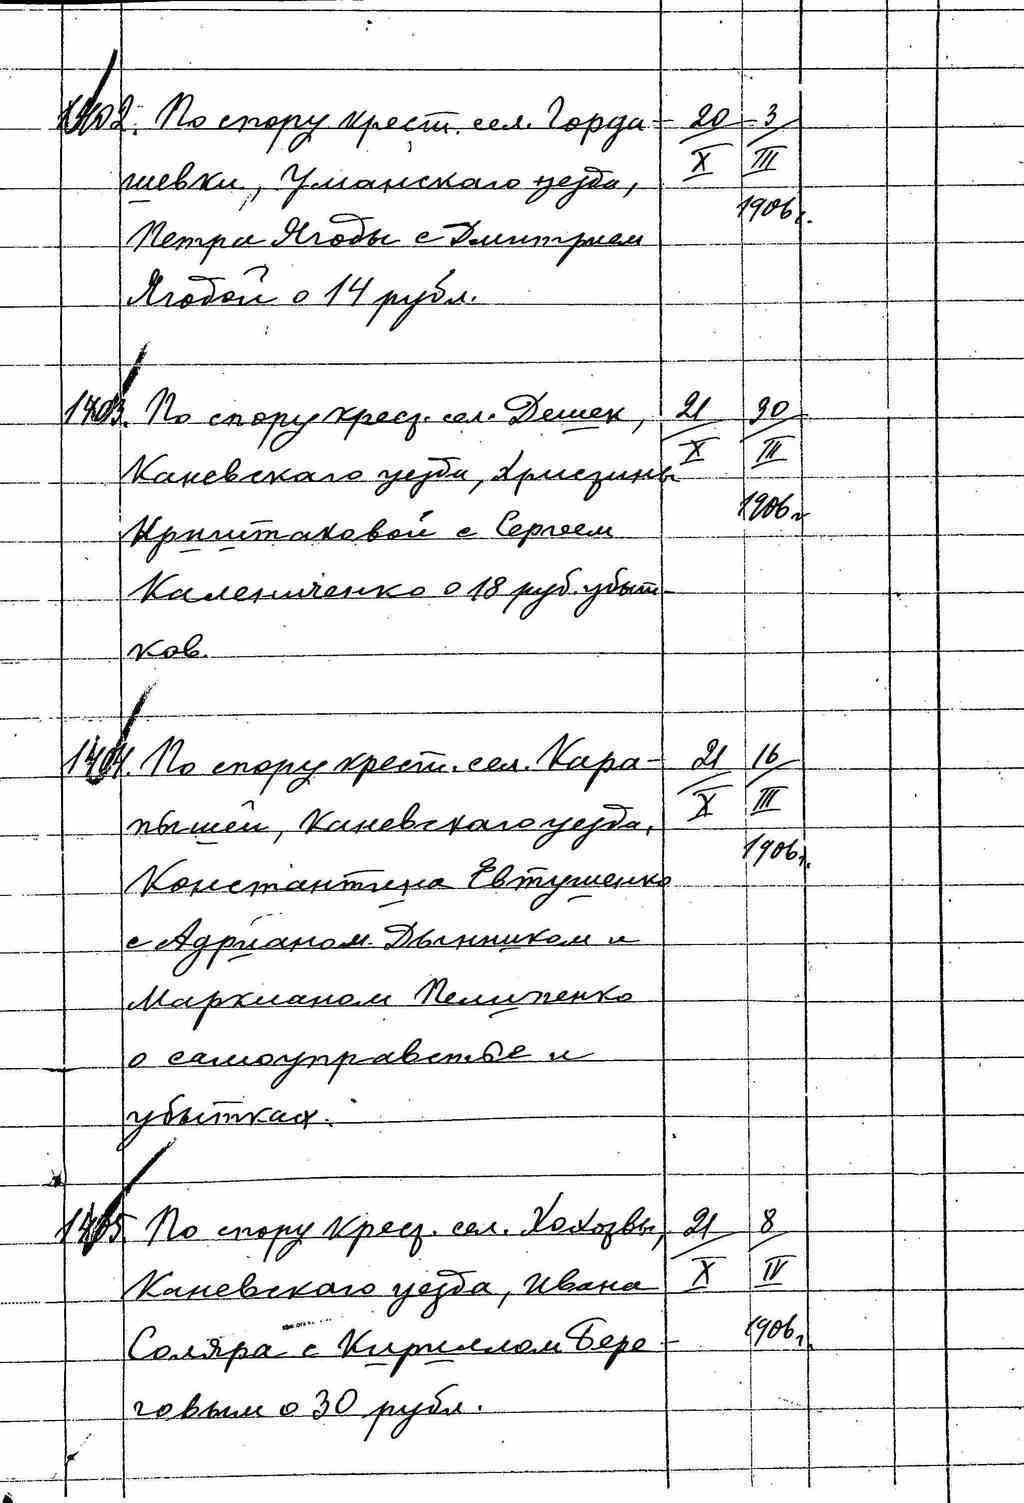 1402. По спору крест. сел. Горда- 20 3
шевки, Уманскаго уезда, X III
1906 г.
Петра Ягоды с Дмитрием
Ягодой о 14 рубл.
1403. По спору крест. сел. Дешек, 21 30
Каневскаго уезда, Христины X III
1906 г.
Крыштаковой с Сергеем
Калениченко о 18 руб. убыт-
ков.
1404. По спору крест. сел. Кара- 21 16
пышей, Каневскаго уезда, X III
1906 г.
Константина Евтушенко
с Адрианом Дынником и
Маркианом Пелипенко
о самоуправстве и
убытках.
1405. По спору крест. сел. Хохитвы, 21 8
Каневскаго уезда, Ивана X IV
1906 г.
Соляра с Кириллом Бере-
говым о 30 рубл.